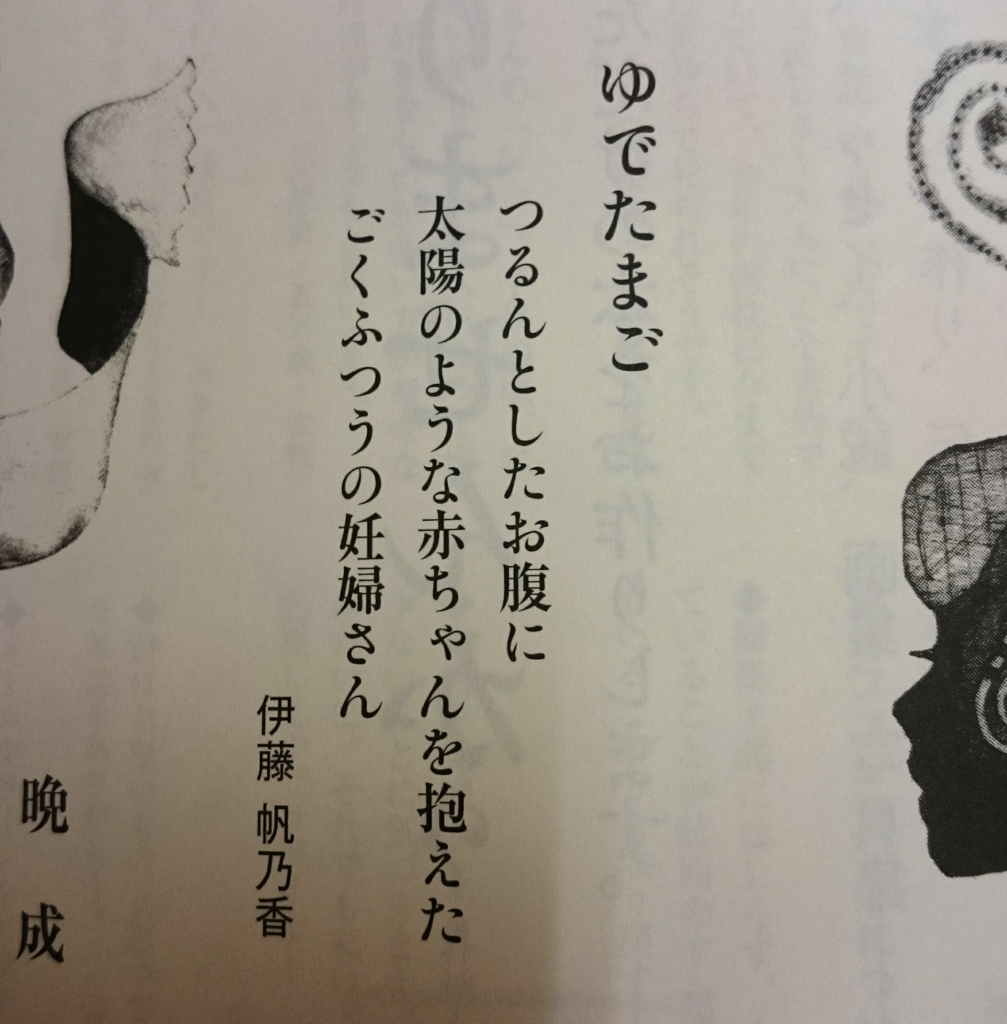 ゆでたまご
つるんとしたお腹に
太陽のような赤ちゃんを抱えた
ごくふつうの妊婦さん
伊藤 帆乃香
晩成